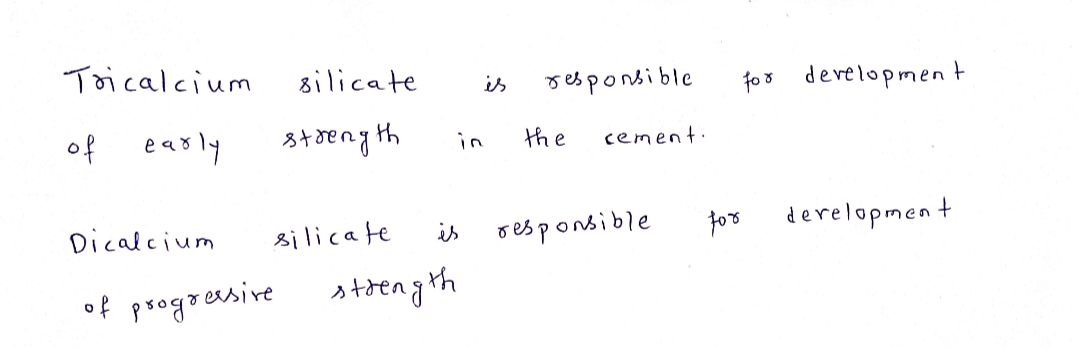 Tricalcium silicate is responsible for development
of early strength in the cement.
Dicalcium silicate is responsible for development
of progressive strength